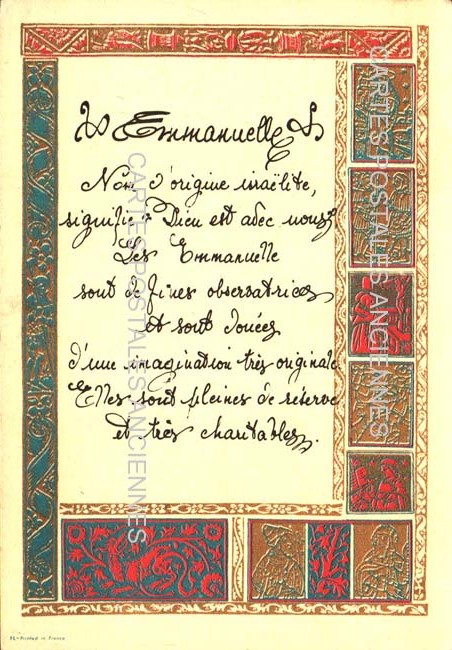 Emmanuelle
Nom d'origine israëlite,
signifie : "Dieu est avec nous".
Les Emmanuelle
sont de fines observatrices
et sont douées
d'une imagination très originale
Elles sont pleines de réserve
et très charitables.
CARTES POSTALES ANCIENNES
CARTES POSTALES ANCIENNES
Printed in France